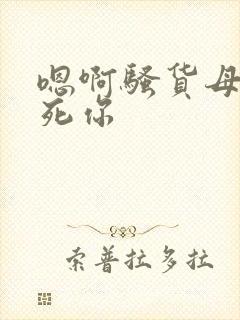 嗯啊骚货母
死你
索普拉多拉